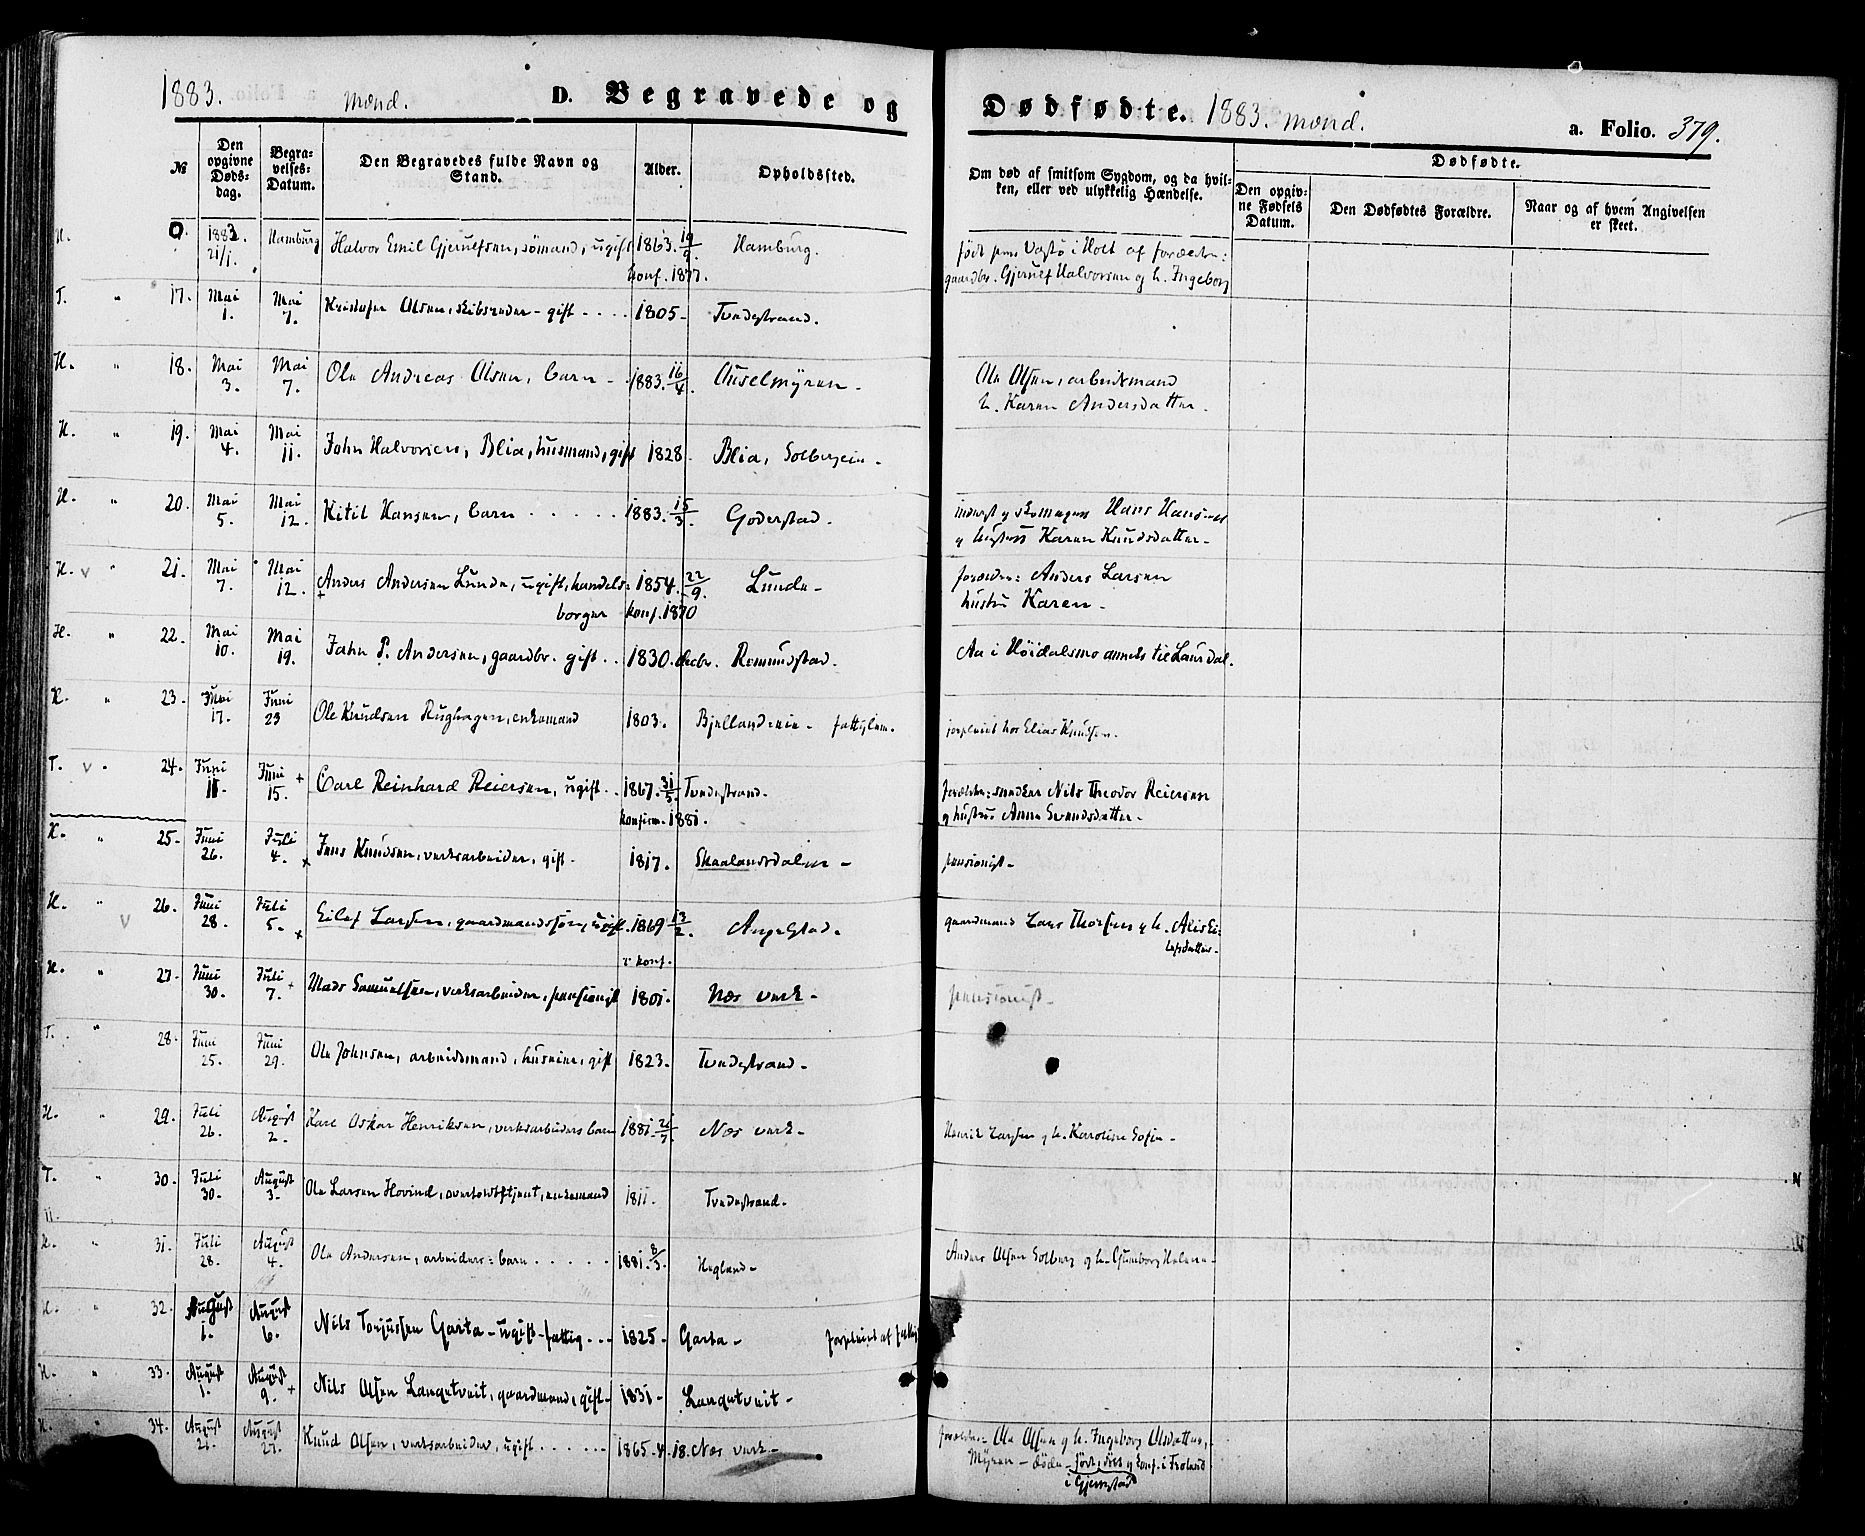 1883. mænd. D. Begravede og Dødfødte. 1883. mænd. a. Folio. 379.
№
Den opgivne Døds-dag.
Begra-velses-Datum.
Den Begravedes fulde Navn og Stand.
Alder.
Opholdssted.
Om død af smitsom Sygdom, og da hvil-ken, eller ved ulykkelig Hændelse.
Dødfødte.
Den opgiv-ne Fødsels Datum.
Den Dødfødtes Forældre.
Naar og af hvem Angivelsen er skeet.
H. 0. 1883. 21/1. Hamburg Halvor Emil Gjerulfsen, sømand, ugift 1863. 19/9. Hamburg. født paa Vastø i Holt af forældre:
konf. 1877. gaardbr. Gjerulf Halvorsen og h. Ingeborg
T. " 17. Mai 1. Mai 7. Kristofer Olsen, skibsreder - gift .... 1805 - Tvedestrand.
H. " 18. Mai 3. Mai 7. Ole Andreas Olsen, barn - 1883. 16/4. Auselmyren - Ole Olsen, arbeidsmand
h. Karen Andersdatter.
H. " 19. Mai 4. Mai 11. John Halvorsen, Blia, husmand, gift 1828. Blia, Solbergeie -
H. " 20. Mai 5. Mai 12. Kitil Hansen, barn ..... 1883. 15/3. Goderstad. inderst og skomager Hans Hansen
og hustru Karen Knudsdatter -
H. v " 21. Mai 7. Mai 12. Anders Andersen Lunde, ugift, handels= 1854. 22/9. Lunde - forældre: Anders Larsen
borger konf. 1870 hustru Karen -
H. " 22. Mai 10. Mai 19. John P. Andersen, gaardbr. gift .. 1830. decbr. Romundstad. Aa i Høidalsmo annex til Laurdal.
H. " 23. Juni 17. Juni 23 Ole Knudsen Rughagen, enkemand 1803. Bjellandseie - fattiglem. forpleiet hos Elias Knudsen.
T. v " 24. Juni 11. Juni 15. + Carl Reinhard Reiersen, ugift .. 1867. 31/5. Tvedestrand. forældre: snedker Nils Theodor Reiersen
konfirm. 1881. og hustru Anne Svendsdatter -
H. " 25. Juni 26. Juli 4. + Jens Knudsen, verksarbeider, gift - 1817. Skaalandsdalen - pensionist -
H. v " 26. Juni 28. Juli 5. + Eilef Larsen, gaardmandssøn, ugift. 1869 13/2. Angelstad. gaardmand Lars Thorsen og h. Alis Ei=
konf. lefsdatter -
H. " 27. Juni 30. Juli 7. + Mads Samuelsen, verksarbeider, pensionist 1801. Næs verk - pensionist -
T. " 28. Juni 25. Juni 29. Ole Johnsen, arbeidsmand, huseier, gift 1823. Tvedestrand -
H. " 29. Juli 26. August 2. Karl Oskar Henriksen, verksarbeiders barn 1881. Næs verk - Henrik Larsen og h. Karoline Sofie -
T. " 30. Juli 30. August 3. Ole Larsen Hovind, overtoldtjent, enkemand 1811. Tvedestrand -
H. " 31. Juli 28. August 4. Ole Andersen, arbeiders= barn ..... 1881. 8/3. Hegland - Anders Olsen Solberg og h. Gunborg Helene -
H. " 32. August 1. August 6. Nils Torjussen Garta - ugift - fattig ... 1825 - Garta - forpleiet af
H. " 33. August 1. August 9. + Nils Olsen Langetveit, gaardmand, gift - 1831 - Langetveit -
H. " 34. August 21. August 27. Knud Olsen, verksarbeider, ugift ..... 1865. Næs verk - forældre - Ole Olsen og h. Ingeborg Olsdatter,
Myren - døde - født, døbt og konf. i Froland
i Gjerestad